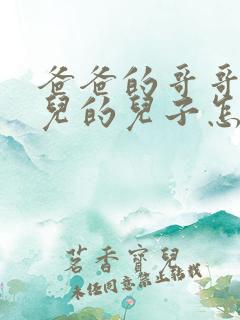 爸爸的哥哥
兒的兒子怎
茗香寶兒
未经同意禁止转载